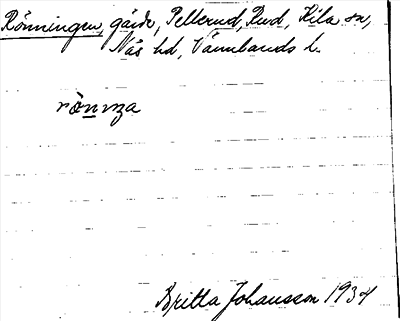 Rönningen, gärde, Pellerud, Rud, Kila sn,
Näs hd, Värmlands l.
Britta Johansson 1934